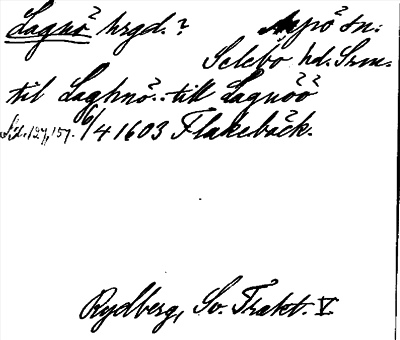 Lagnö hrgd.? Aspö sn:
Selebo hd. Srm.
til Laghnö.. till Lagnöö
Sid. 127, 157. 6/4 1603 Flakebäck.
Rydberg, Sv. Trakt. V.